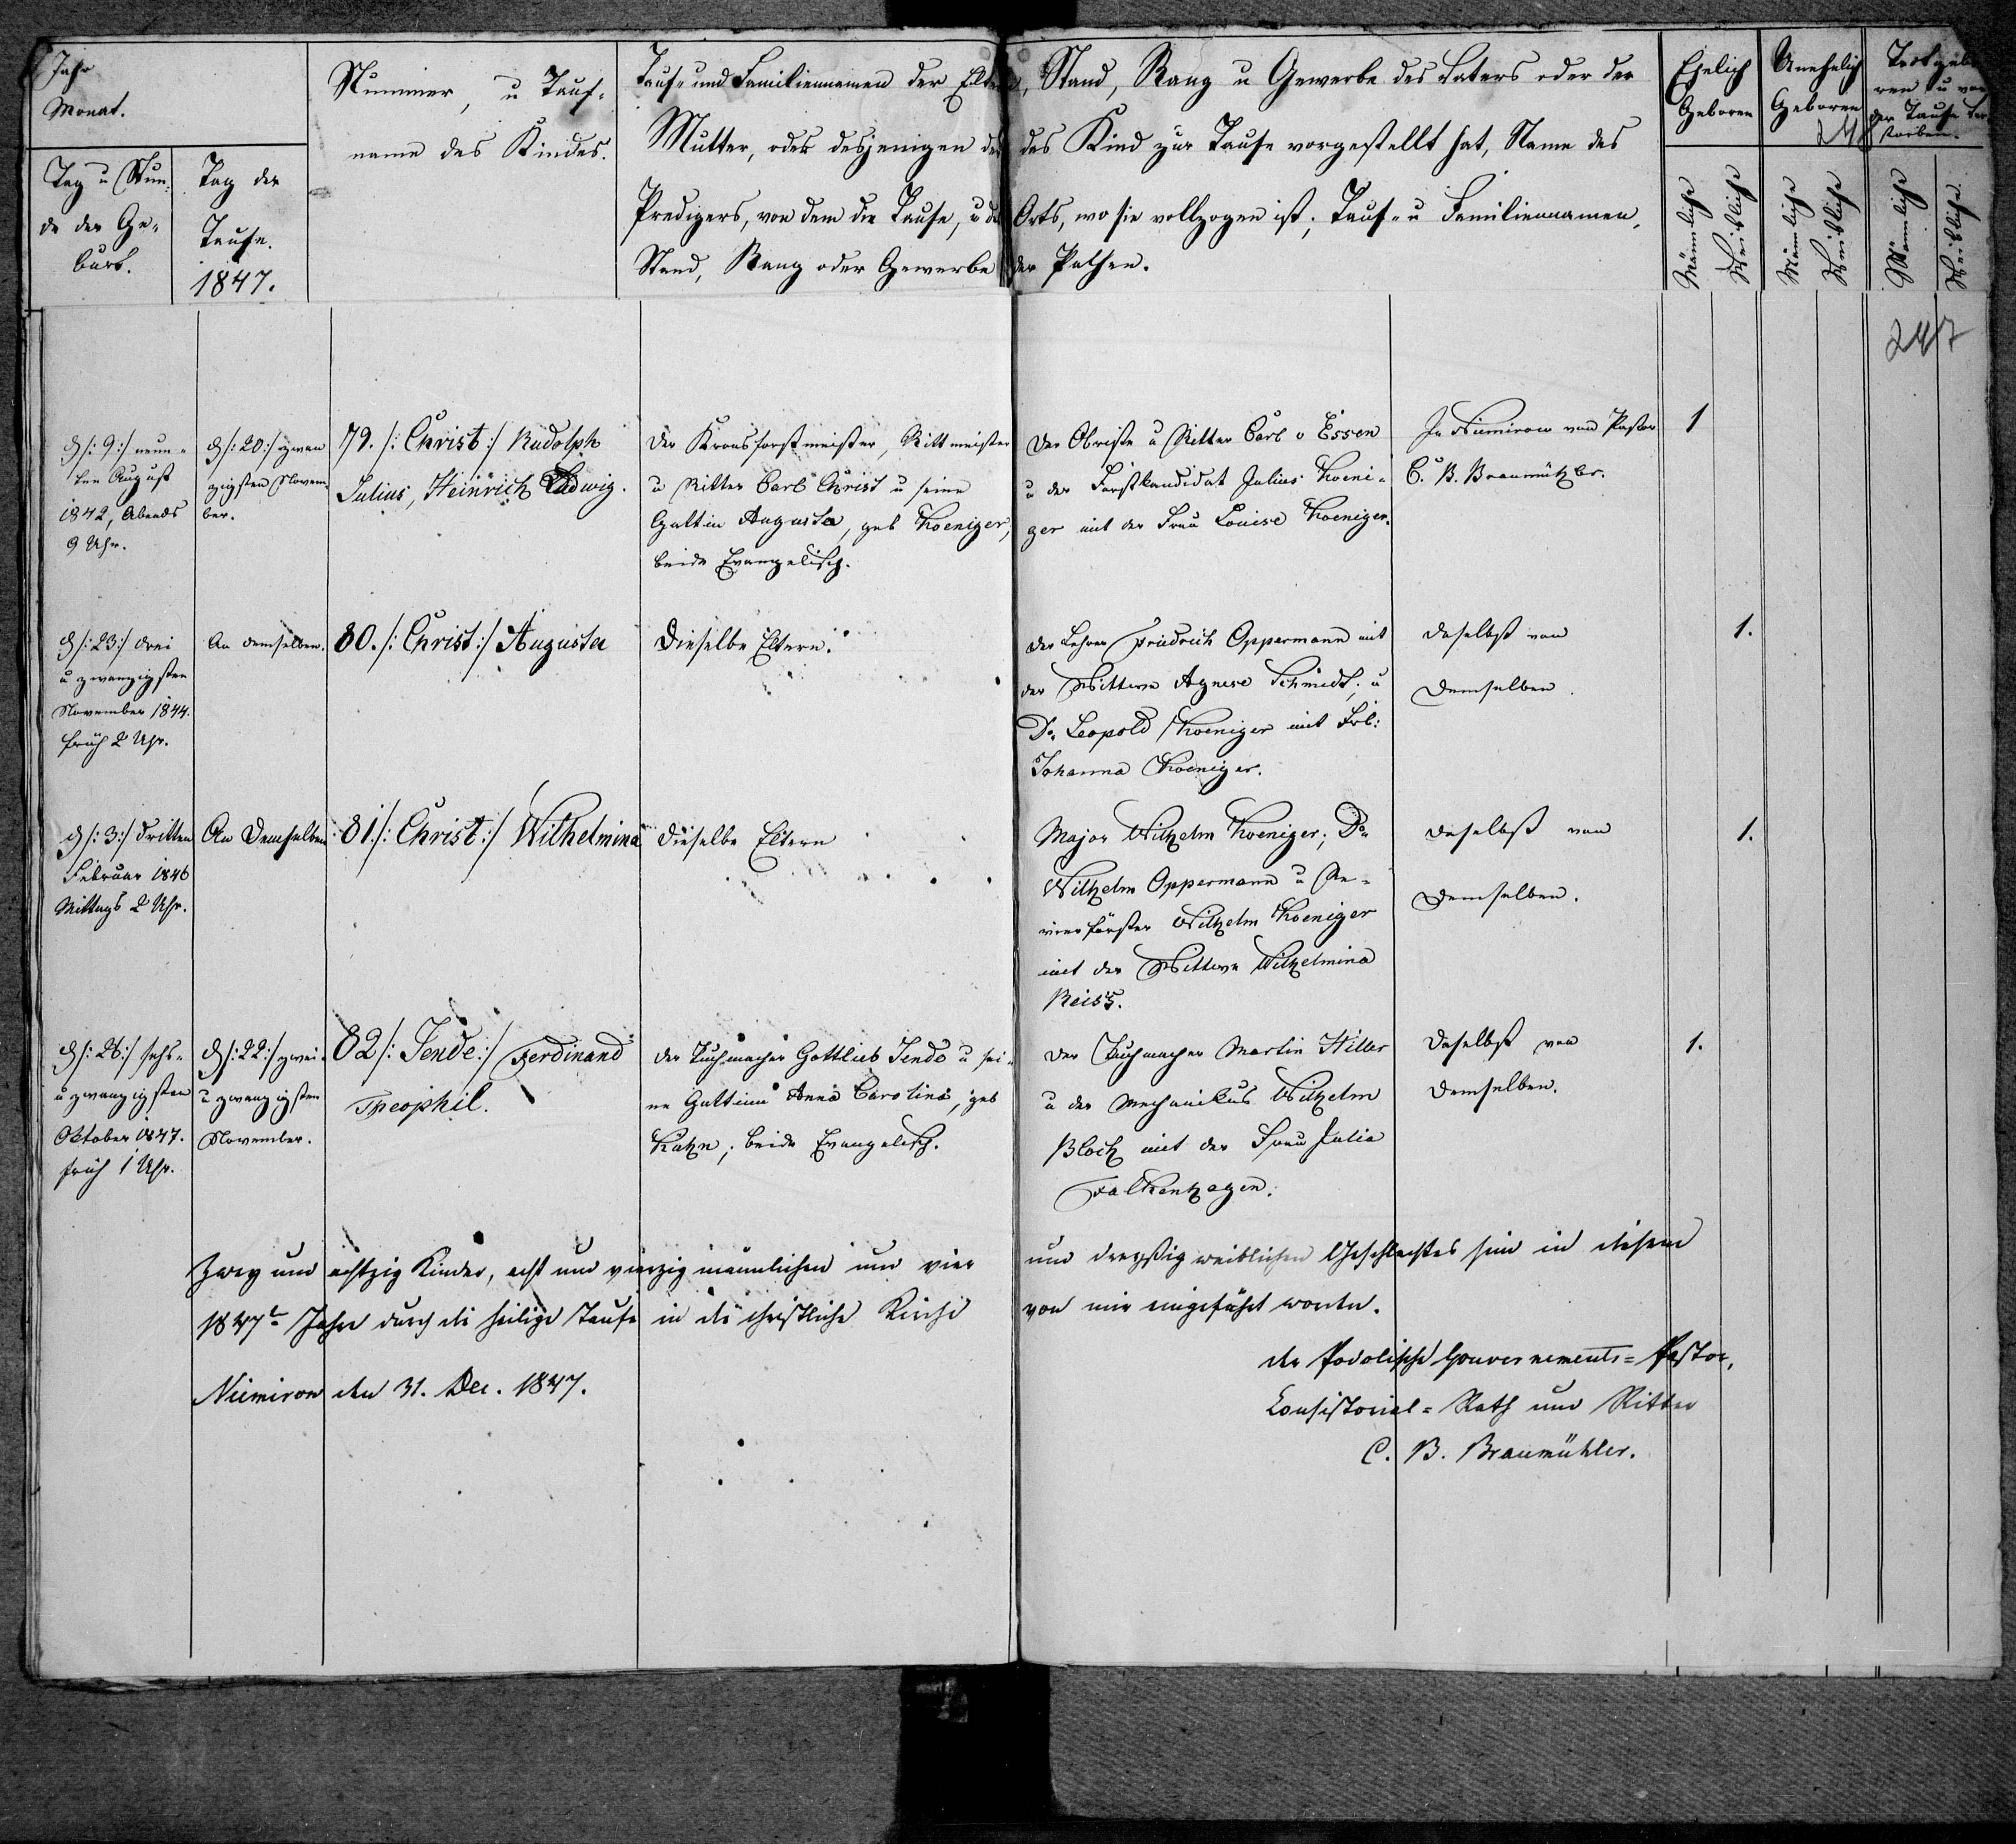 Jahr
Monat.
Tag u Stun-
de der Ge-
burt.
Tag der
Taufe.
1847.
Nummer, u Tauf-
name des Kindes.
Tauf- und Familiennamen der Eltern, Stand, Rang u Gewerbe des Vaters oder der
Mutter, oder desjenigen der das Kind zur Taufe vorgestellt hat, Name des
Predigers, von dem die Taufe, u des Orts, wo sie vollzogen ist; Tauf- u Familiennamen,
Stand, Rang oder Gewerbe der Pathen.
Ehelich
Geboren
Unehelich
Geboren
Todtgebo
ren u vor
der Taufe ver-
storben.
Männliche
Weibliche
Männliche
Weibliche
Männliche
Weibliche.
247
d /: 9 :/ neun-
ten August
1842, Abends
9 Uhr.
d /: 20 :/ zwan
zigsten Novem-
ber.
79. /: Christ :/ Rudolph
Julius, Heinrich Ludwig.
Der Kronsforstmeister, Rittmeister
u Ritter Carl Christ u seine
Gattin Augusta, geb Koeniger,
beide Evangelisch.
Der Obriste u Ritter Carl v Essen
u der Forstkandidat Julius Koeni-
ger mit der Frau Louise Koeniger.
In Niemirow von Pastor
C. B. Braumühler.
1
d /: 23 :/ drei
u zwanzigsten
November 1844.
früh 2 Uhr.
An demselben.
80. /: Christ :/ Augusta
Dieselbe Eltern.
Der Lehrer Friedrich Oppermann mit
der Wittwe Agnese Schmidt; u
Dr. Leopold Koeniger mit Frl:
Johanna Koeniger.
Daselbst von
Demselben.
1.
d /: 3 :/ dritten
Februar 1846
Mittags 2 Uhr.
An Demselben
81. /: Christ :/ Wilhelmina
Dieselbe Eltern
Major Wilhelm Koeniger; Dr
Wilhelm Oppermann u Re-
vierförster Wilhelm Koeniger
mit der Wittwe Wilhelmina
Reiss.
Daselbst von
Demselben.
1.
d /: 26 :/ sechs-
u zwanzigsten
Oktober 1847.
früh 1 Uhr.
d /: 22 :/ zwei-
u zwanzigsten
November.
82 /: Jende :/ Ferdinand
Theophil.
Der Tuchmacher Gottlieb Jende u sei-
ne Gattinn Anna Carolina, geb
Kahn; beide Evangelisch.
Der Tuchmacher Martin Hiller
u der Mechanikus Wilhelm
Bloch mit der Frau Julia
Falkenhagen.
Daselbst von
Demselben.
1.
Zwey und achtzig Kinder, acht und vierzig männlichen und vier und dreyßig weiblichen Geschlechtes sind in diesem
1847t Jahre durch die heilige Taufe in die christliche Kirche von mir eingeführt worden.
Niemirow den 31. Dec. 1847.
Der Podolische Gouvernements-Pastor,
Consistorial-Rath und Ritter
C. B. Braumühler.